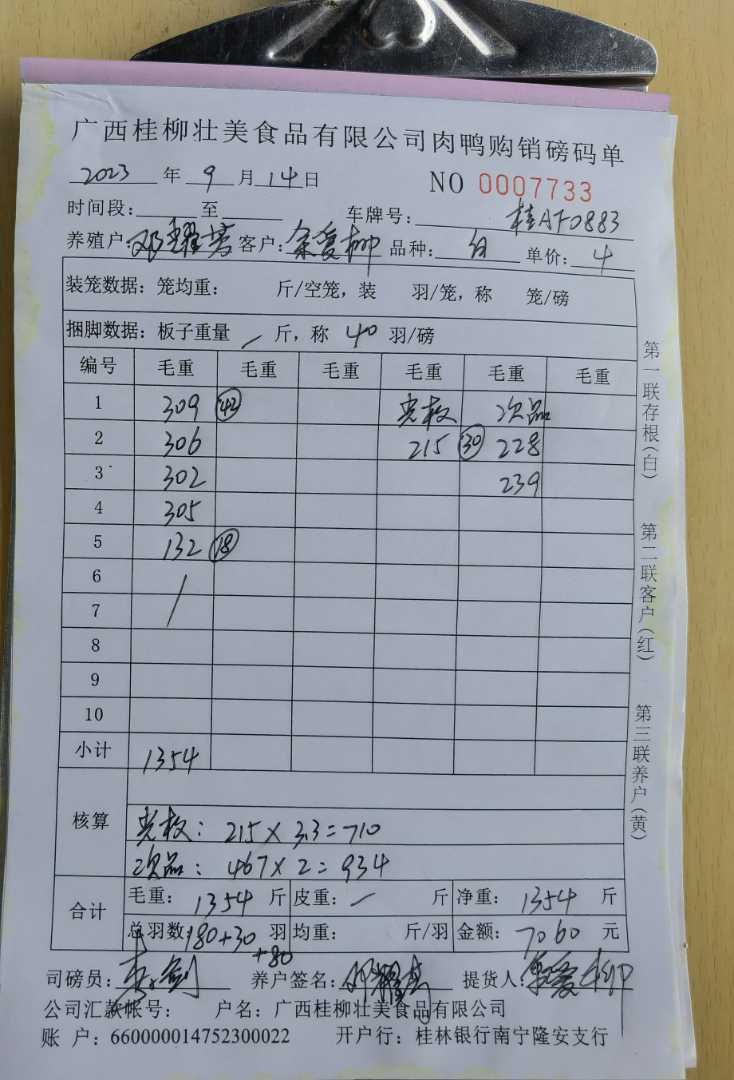 广西桂柳壮美食品有限公司肉鸭购销磅码单
2023 年 9 月 14 日 NO 0007733
时间段: 至 车牌号: 桂AF0883
养殖户: 邓耀 客户: 余爱柳 品种: 白 单价: 4
装笼数据: 笼均重: 斤/空笼, 装 羽/笼, 称 笼/磅
捆脚数据: 板子重量 / 斤, 称 40 羽/磅
编号 毛重 毛重 毛重 毛重 毛重 毛重
1 309 42 次品
2 306 215 30 228
3 302 239
4 305
5 132 18
6 /
7
8
9
10
小计 1354
核算
215 × 3.3 = 710
次品: 467 × 2 = 934
合计 毛重: 1354 斤 皮重: / 斤 净重: 1354 斤
总羽数: 180+30 羽 均重: 斤/羽 金额: 7060 元
+80
司磅员: 养户签名: 邓耀 提货人: 余爱柳
公司汇款帐号: 户名: 广西桂柳壮美食品有限公司
账 户: 660000014752300022 开户行: 桂林银行南宁隆安支行
第一联存根(白)
第二联客户(红)
第三联养户(黄)